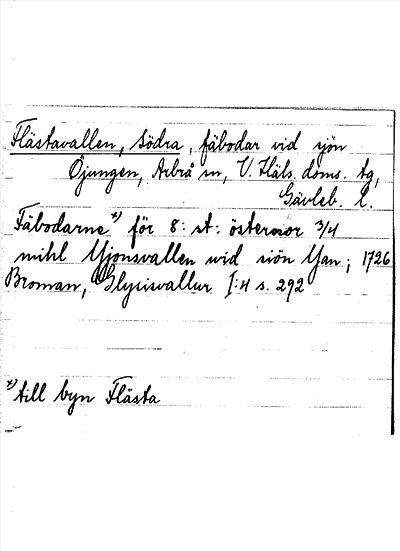 Flästavallen, södra, fäbodar vid sjön
Öjungen, Arbrå sn, V. Häls. doms. tg,
Gävleb. l.
Fäbodarne *) för 8: st: österoor 3/4
mihl Yjonsvallen wid siön Yan; 1726
Broman, Glysisvallur I:4 s. 292
*) till byn Flästa